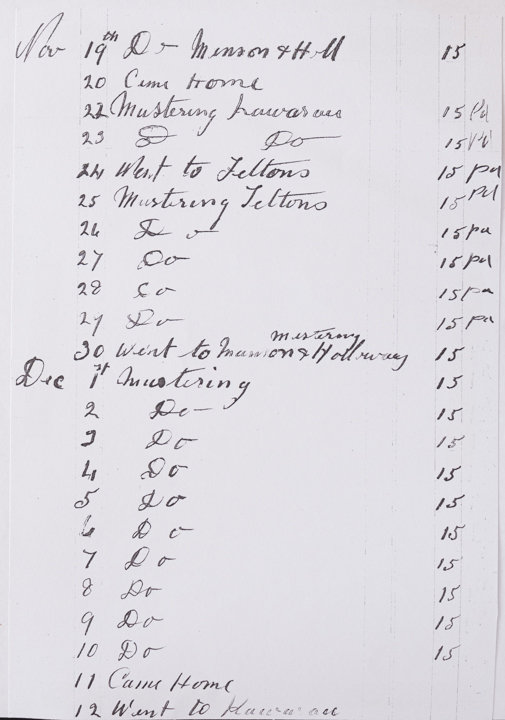 Nov 19th Do Minson & Holl 15
20 Came Home
22 Mustering Kawarau 15 Pd
23 Do Do 15 Pd
24 Went to Feltons 15 pd
25 Mustering Feltons 15 Pd
26 Do 15 pd
27 Do 15 pd
28 Do 15 pd
29 Do 15 pd
mustering
30 Went to & Holloway 15
Dec 1st Mustering 15
2 Do 15
3 Do 15
4 Do 15
5 Do 15
6 Do 15
7 Do 15
8 Do 15
9 Do 15
10 Do 15
11 Came Home
12 Went to Kawarau